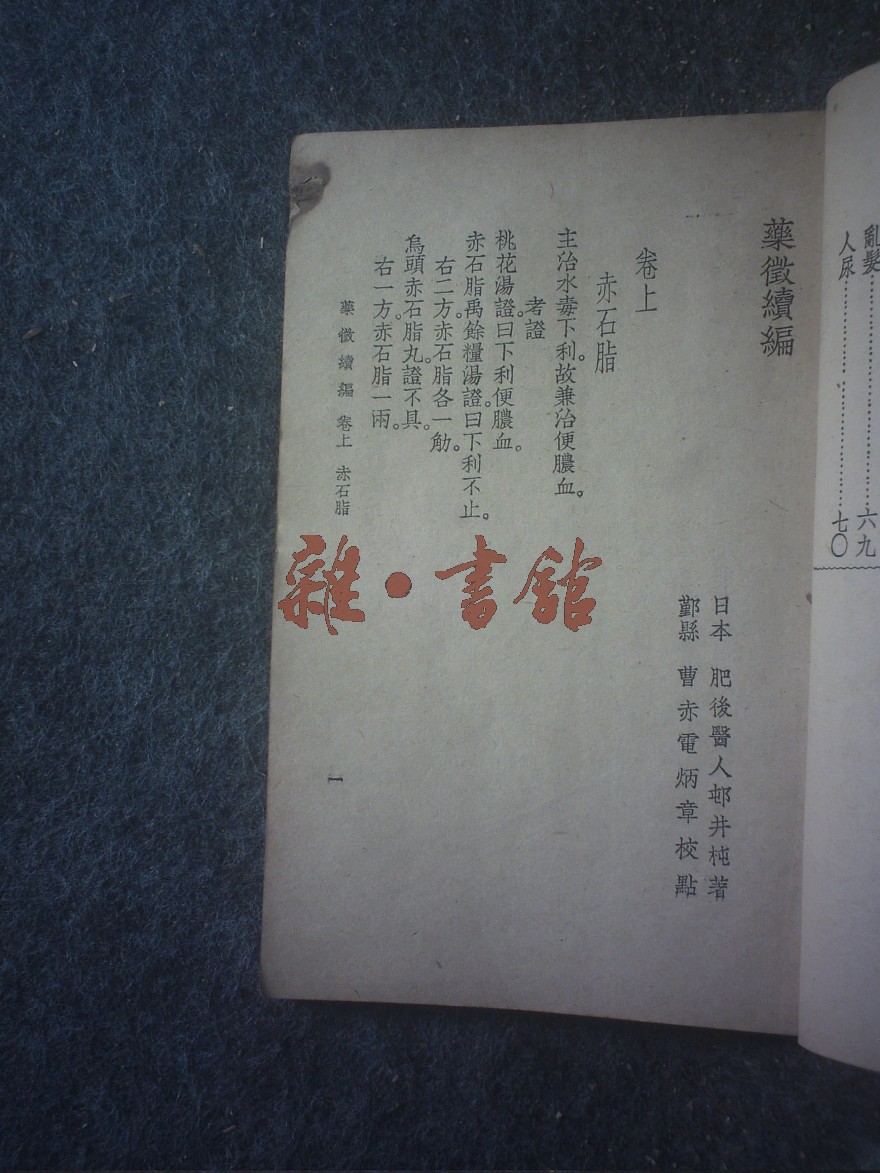 亂髮……六九
人尿……七〇
藥徵續編
日本 肥後醫人邨井杶著
鄞縣 曹赤電炳章校點
卷上
赤石脂
主治水毒下利。故兼治便膿血。
考證
桃花湯證曰下利便膿血。
赤石脂禹餘糧湯證。曰下利不止。
右二方。赤石脂各一觔。
烏頭赤石脂丸。證不具。
右一方。赤石脂一兩。
藥徵續編 卷上 赤石脂
一
雜·書館